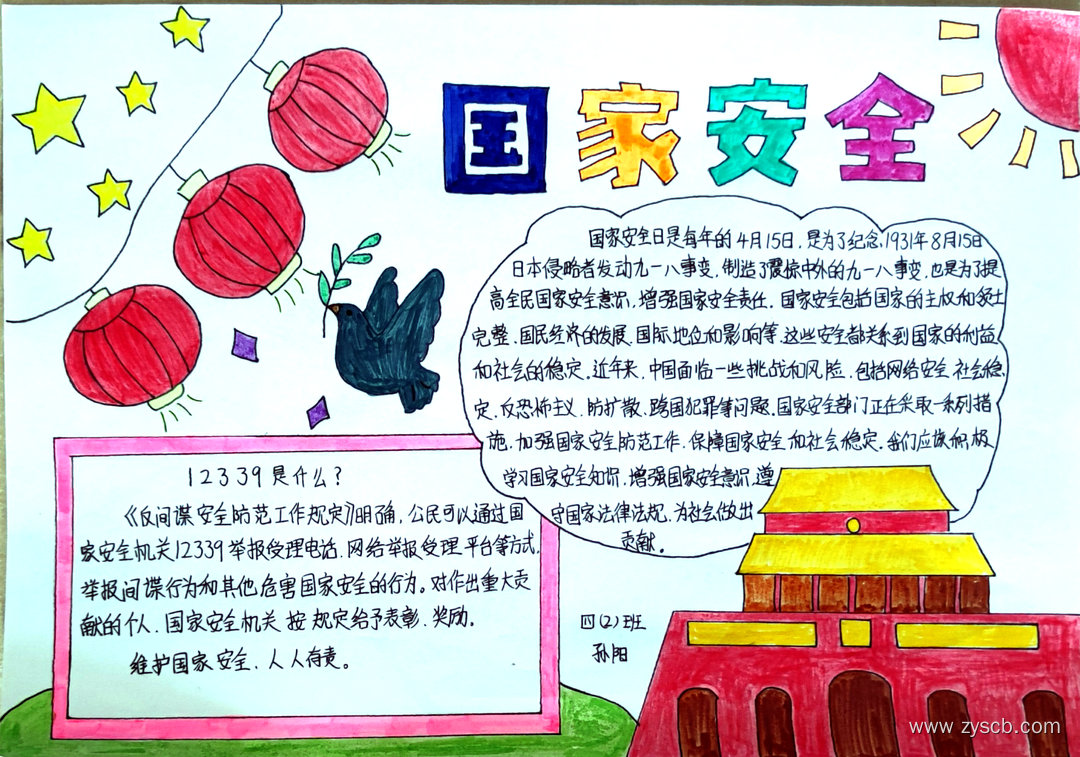 国家安全
国家安全日是每年的4月15日，是为了纪念，1931年8月15日
日本侵略者发动九一八事变，制造了震惊中外的九一八事变，也是为了提
高全民国家安全意识，增强国家安全责任。国家安全包括国家的主权和领土
完整、国民经济的发展、国际地位和影响等，这些安全都关系到国家的利益
和社会的稳定。近年来，中国面临一些挑战和风险，包括网络安全、社会稳
定、反恐怖主义、防扩散、跨国犯罪等问题。国家安全部门正在采取一系列措
施，加强国家安全防范工作，保障国家安全和社会稳定。我们应该积极
学习国家安全知识，增强国家安全意识，遵
守国家法律法规，为社会做出
贡献。
12339是什么？
《反间谍安全防范工作规定》明确，公民可以通过国
家安全机关12339举报受理电话、网络举报受理平台等方式，
举报间谍行为和其他危害国家安全的行为。对作出重大贡
献的个人，国家安全机关按规定给予表彰、奖励。
维护国家安全，人人有责。
四(2)班
孙阳
www.zyscb.com